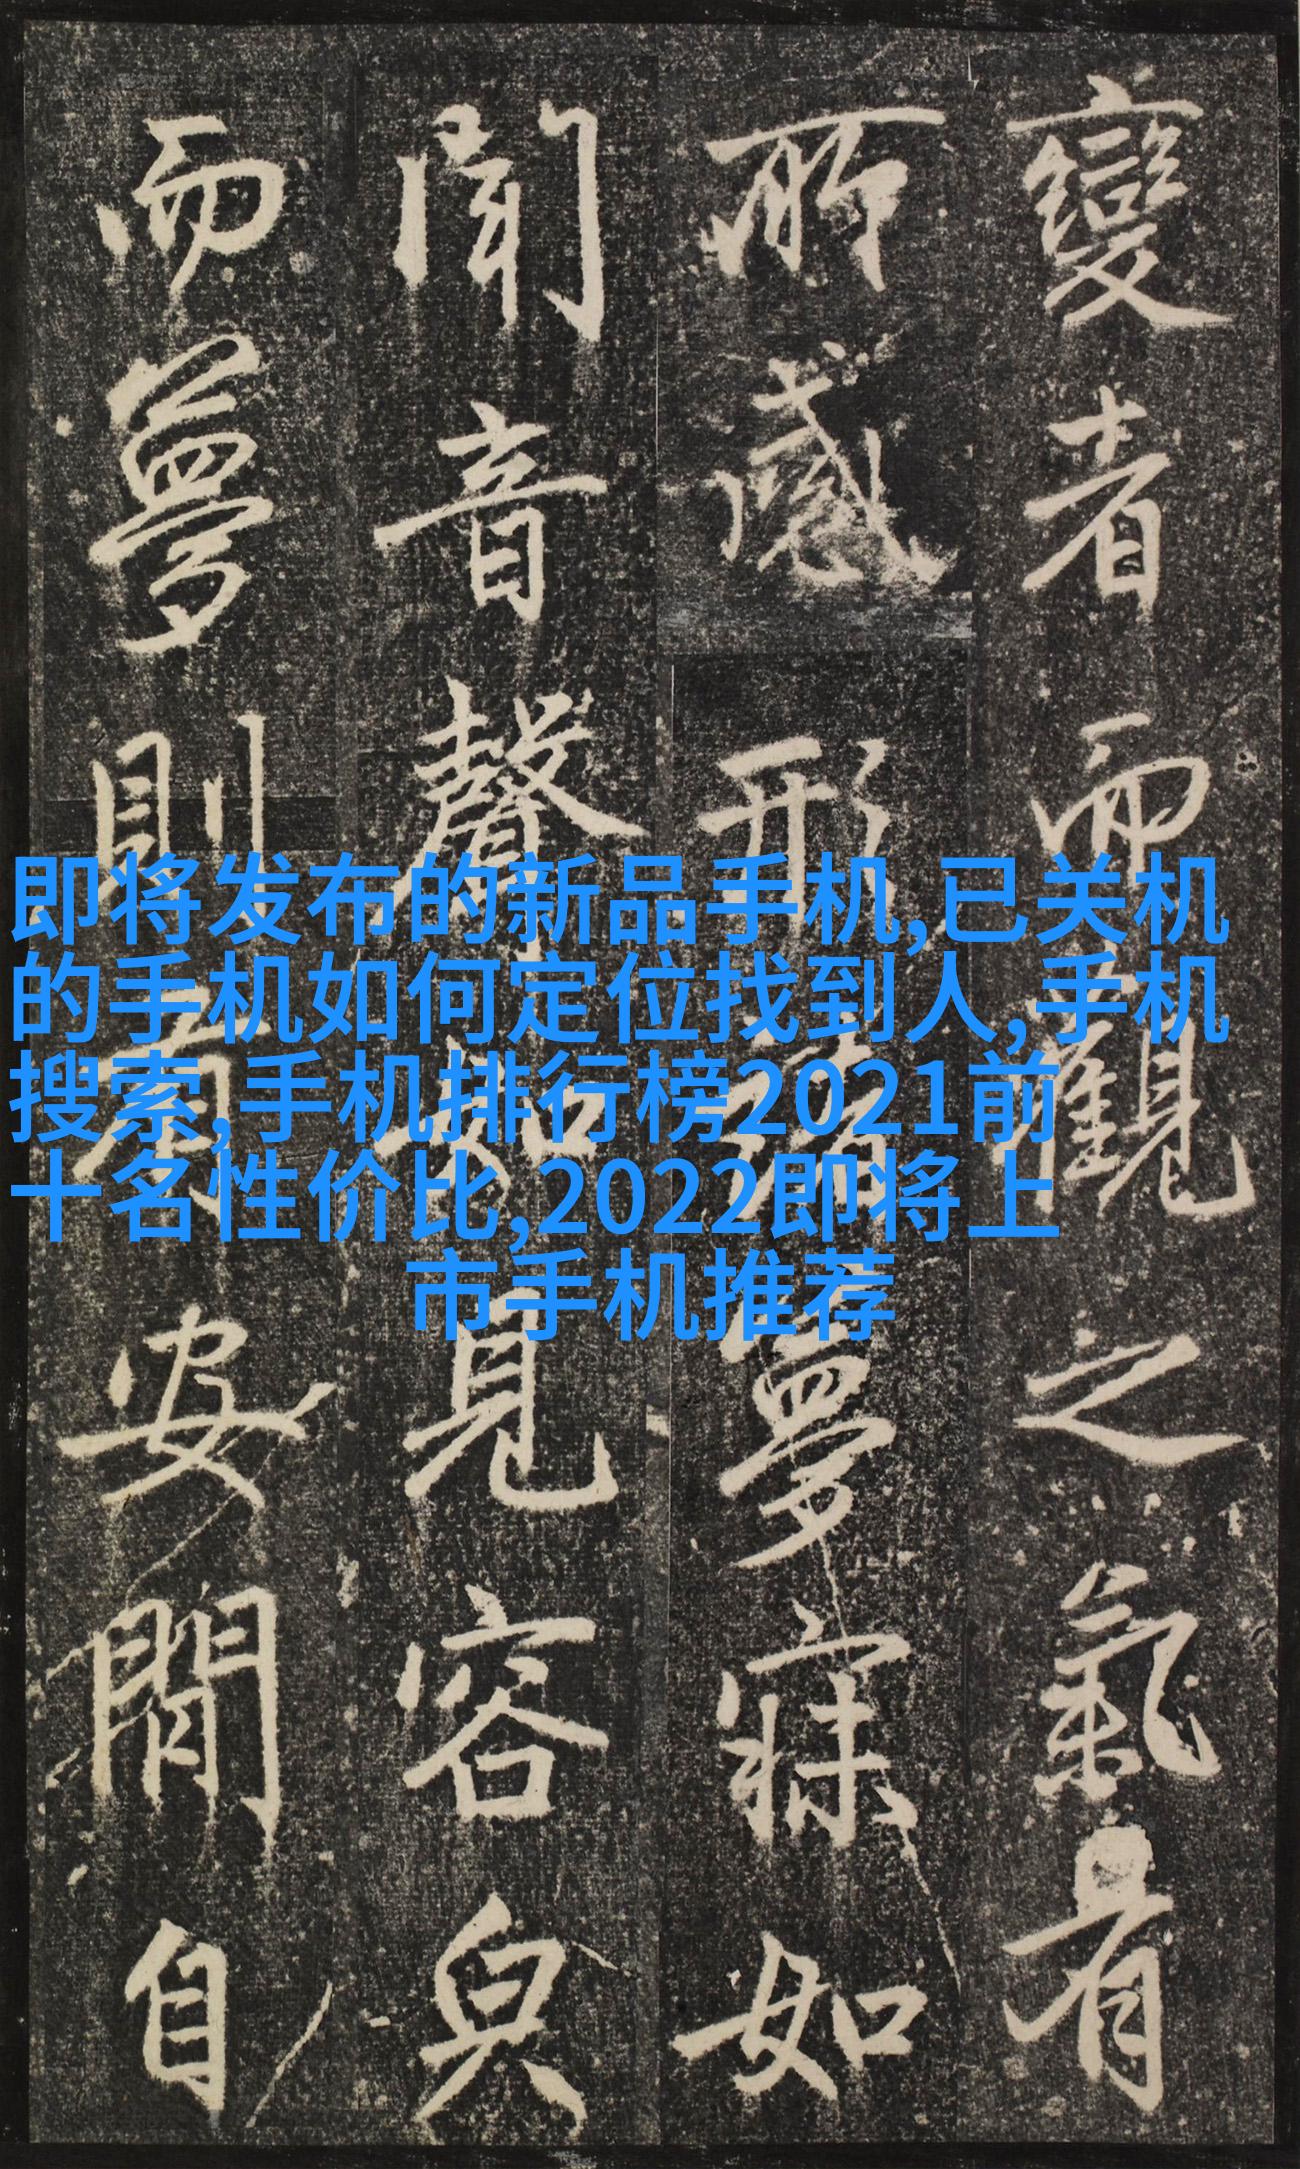 變者而觀之氣有
所感形諸夢寐如
聞音聲如見容皃
而夢則安閒自
即将发布的新品手机,已关机
的手机如何定位找到人,手机
搜索,手机排行榜2021前
十名性价比,2022即将上
市手机推荐